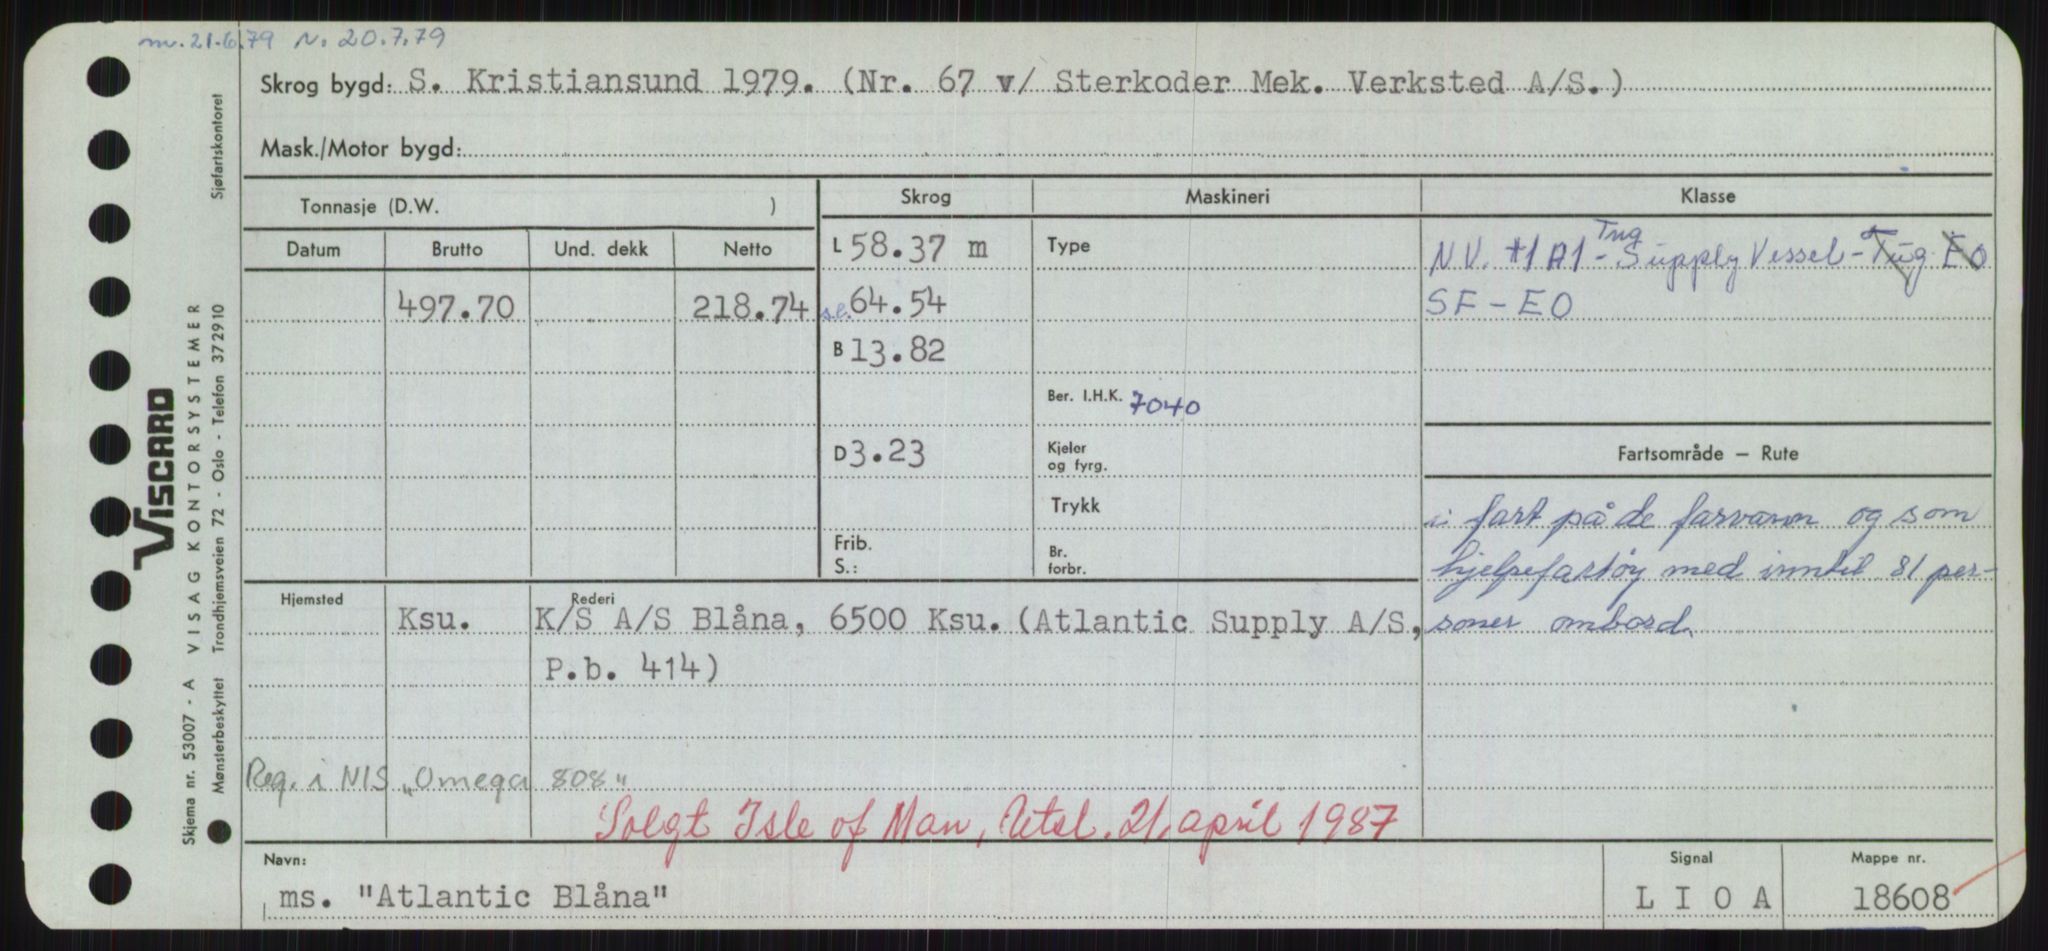 m. 21.6.79 N. 20.7.79
Skrog bygd: S. Kristiansund 1979. (Nr. 67 v/ Sterkoder Mek. Verksted A/S.)
Mask./Motor bygd:
Tonnasje (D.W. )
Skrog
Maskineri
Klasse
Datum
Brutto
Und. dekk
Netto
L 58.37 m
Type
Tug
N.V. +1A1 - Supply Vessel - Tug EO
497.70
218.74
s.l. 64.54
SF - EO
B 13.82
Ber. I.H.K. 7040
D 3.23
Kjeler
og fyrg.
Fartsområde – Rute
Trykk
i fart på de farvann og som
Frib.
S.:
Br.
forbr.
hjelpefartøy med inntil 81 per-
soner ombord.
Hjemsted
Rederi
Ksu.
K/S A/S Blåna, 6500 Ksu. (Atlantic Supply A/S,
P.b. 414)
Reg. i NIS „Omega 808"
Solgt Isle of Man, Utsl. 21. april 1987
Navn:
Signal
Mappe nr.
ms. "Atlantic Blåna"
L I O A
18608
VISCARD
Skjema nr. 53007 - A VISAG KONTORSYSTEMER
Mønsterbeskyttet Trondhjemsveien 72 - Oslo - Telefon 372910 Sjøfartskontoret